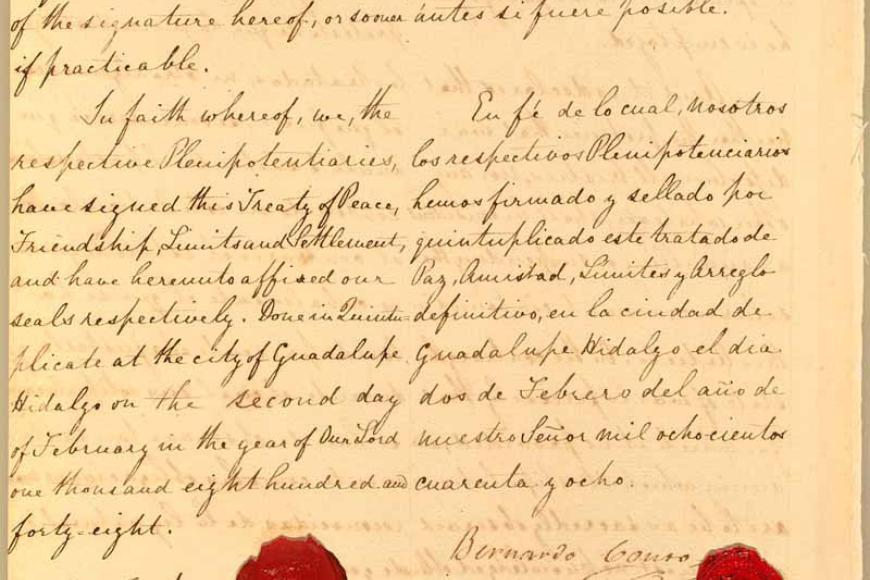 of the signature hereof, or sooner
if practicable.
In faith whereof, we, the
respective Plenipotentiaries,
have signed this Treaty of Peace,
Friendship, Limits and Settlement,
and have hereunto affixed our
seals respectively. Done in Quintu=
plicate at the city of Guadalupe
Hidalgo on the second day
of February in the year of Our Lord
one thousand eight hundred and
forty-eight.
antes si fuere posible.
En fé de lo cual, nosotros
los respectivos Plenipotenciarios
hemos firmado y sellado por
quintuplicado este tratado de
Paz, Amistad, Límites y Arreglo
definitivo, en la ciudad de
Guadalupe Hidalgo el dia
dos de Febrero del año de
nuestro Señor mil ochocientos
cuarenta y ocho.
Bernardo Couto